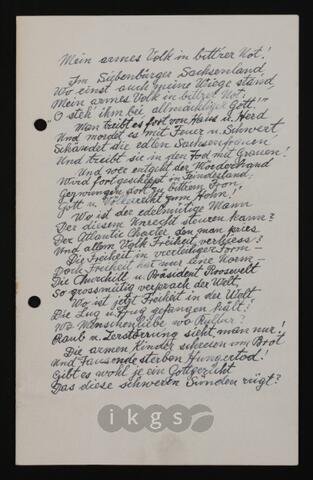 Mein armes Volk in bittrer Not!
Im Siebenbürger Sachsenland
Wo einst auch meine Wiege stand,
Mein armes Volk in bittrer Not,
"O steh ihm bei allmächtiger Gott!"
Man treibt es fort von Haus u. Herd
Und mordet es mit Feuer u. Schwert,
Schändet die edlen Sachsenfrauen
Und treibt sie in den Tod mit Grauen!
Und wer entgeht der Mörderhand
Wird fortgeschleppt in Feindesland,
Gezwungen dort zu bittrem Fron,
Gott u. Völkerrecht zum Hohn!
Wo ist der edelmütige Mann
Der diesem Unrecht steuern kann?
Der Atlantic Charter den man pries
Und allem Volk Freiheit verhiess?
Die Freiheit in vierteiliger Form—
Doch Freiheit hat nur eine Norm—
Die Churchill u. Präsident Roosevelt
So grossmütig versprach der Welt,
Wo ist jetzt Freiheit in der Welt
Die Lug u. Trug gefangen hält?
Wo Menschenliebe wo Kultur?
Raub u. Zerstörrung sieht man nur!
Die armen Kinder schreien um Brot
Und Tausende sterben Hungertod!
Gibt es wohl je ein Gottgericht
Das diese schweren Sünden rügt?
ikgs